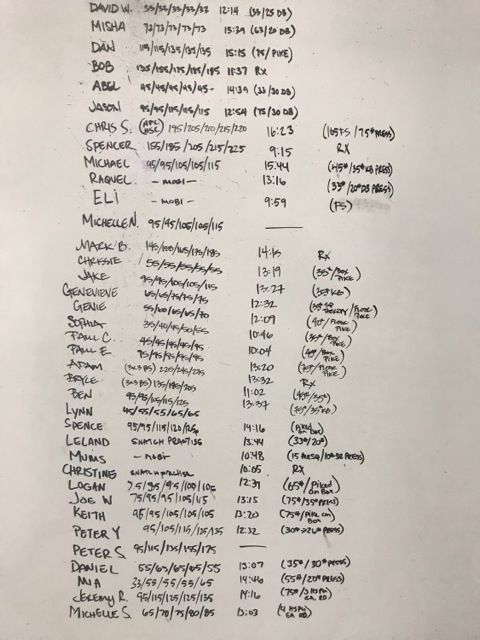 DAVID W. 33/32/33/33/33 12:14 (33/25 DB)
MISHA 73/73/73/73 15:39 (63/20 DB)
DAN 115/115/135/135/135 15:15 (75/PIKE)
BOB 135/155/175/185/185 11:37 RX
ABEL 95/95/95/95/95- 14:39 (33/30 DB)
JASON 95/95/115/95/115 12:54 (75/30 DB)
CHRIS S. 195/205/210/215/220 16:23 (105FS/75# PRESS)
SPENCER 155/185/205/215/225 9:15 RX
MICHAEL 95/95/105/105/115 15:44 (45#/35# KB PRESS)
RAQUEL - MOBI - 13:16 (33#/20# DB PRESS)
ELI - MOBI - 9:59 (FS)
MICHELLE N. 95/95/105/105/115 ——
MARK B. 145/155/165/175/185 14:15 RX
CHRISSIE 55/55/55/55/55 13:19 (35#/BOX PIKE)
JAKE 95/95/105/105/115 13:27
GENEVIEVE 65/65/75/75/75 12:32 (35# KB)
GENIE 55/60/65/65/70 12:09 /FLOOR PIKE)
SOPHIA 35/40/45/50/55 10:46 /FLOOR PIKE)
PAUL C. 95/95/95/95/95 10:04 /BOX PIKE)
PAUL E. 75/75/95/95/95 13:20 /BOX PIKE)
ADAM 220/245/275 13:32 /FLOOR PIKE)
135/185/205 11:02 RX
BEN 95/95/105/115/125 13:37
LYNN 45/55/55/65/65 (75#/35# KB)
SPENCE 95/95/115/120/125 14:16 (PIKED ON BOX)
LELAND SNATCH PRACTISE 13:44 (33#/20#)
MUMS - MOBI - 10:48
CHRISTINE SNATCH PRACTISE 10:05 RX
LOGAN 75/85/95/100/105 12:39 (65#/PIKED ON BOX)
JOE W 75/95/95/105/115 13:15 (75#/35# PRESS)
KEITH 95/95/105/105/105 13:20 (75#/PIKE ON BOX)
PETER Y 95/105/115/125/135 12:32 PRESS)
PETER S 95/115/135/155/175 ——
DANIEL 55/65/65/65/55 13:07 (35#/30# PRESS)
MIA 33/55/55/55/65 14:46 (55#/20# PRESS)
JEREMY R. 95/115/125/125/135 14:16 (75#/3 HSPU EA. RD)
MICHELLE S. 65/70/75/80/85 13:03 (4 HSPU EA RD)